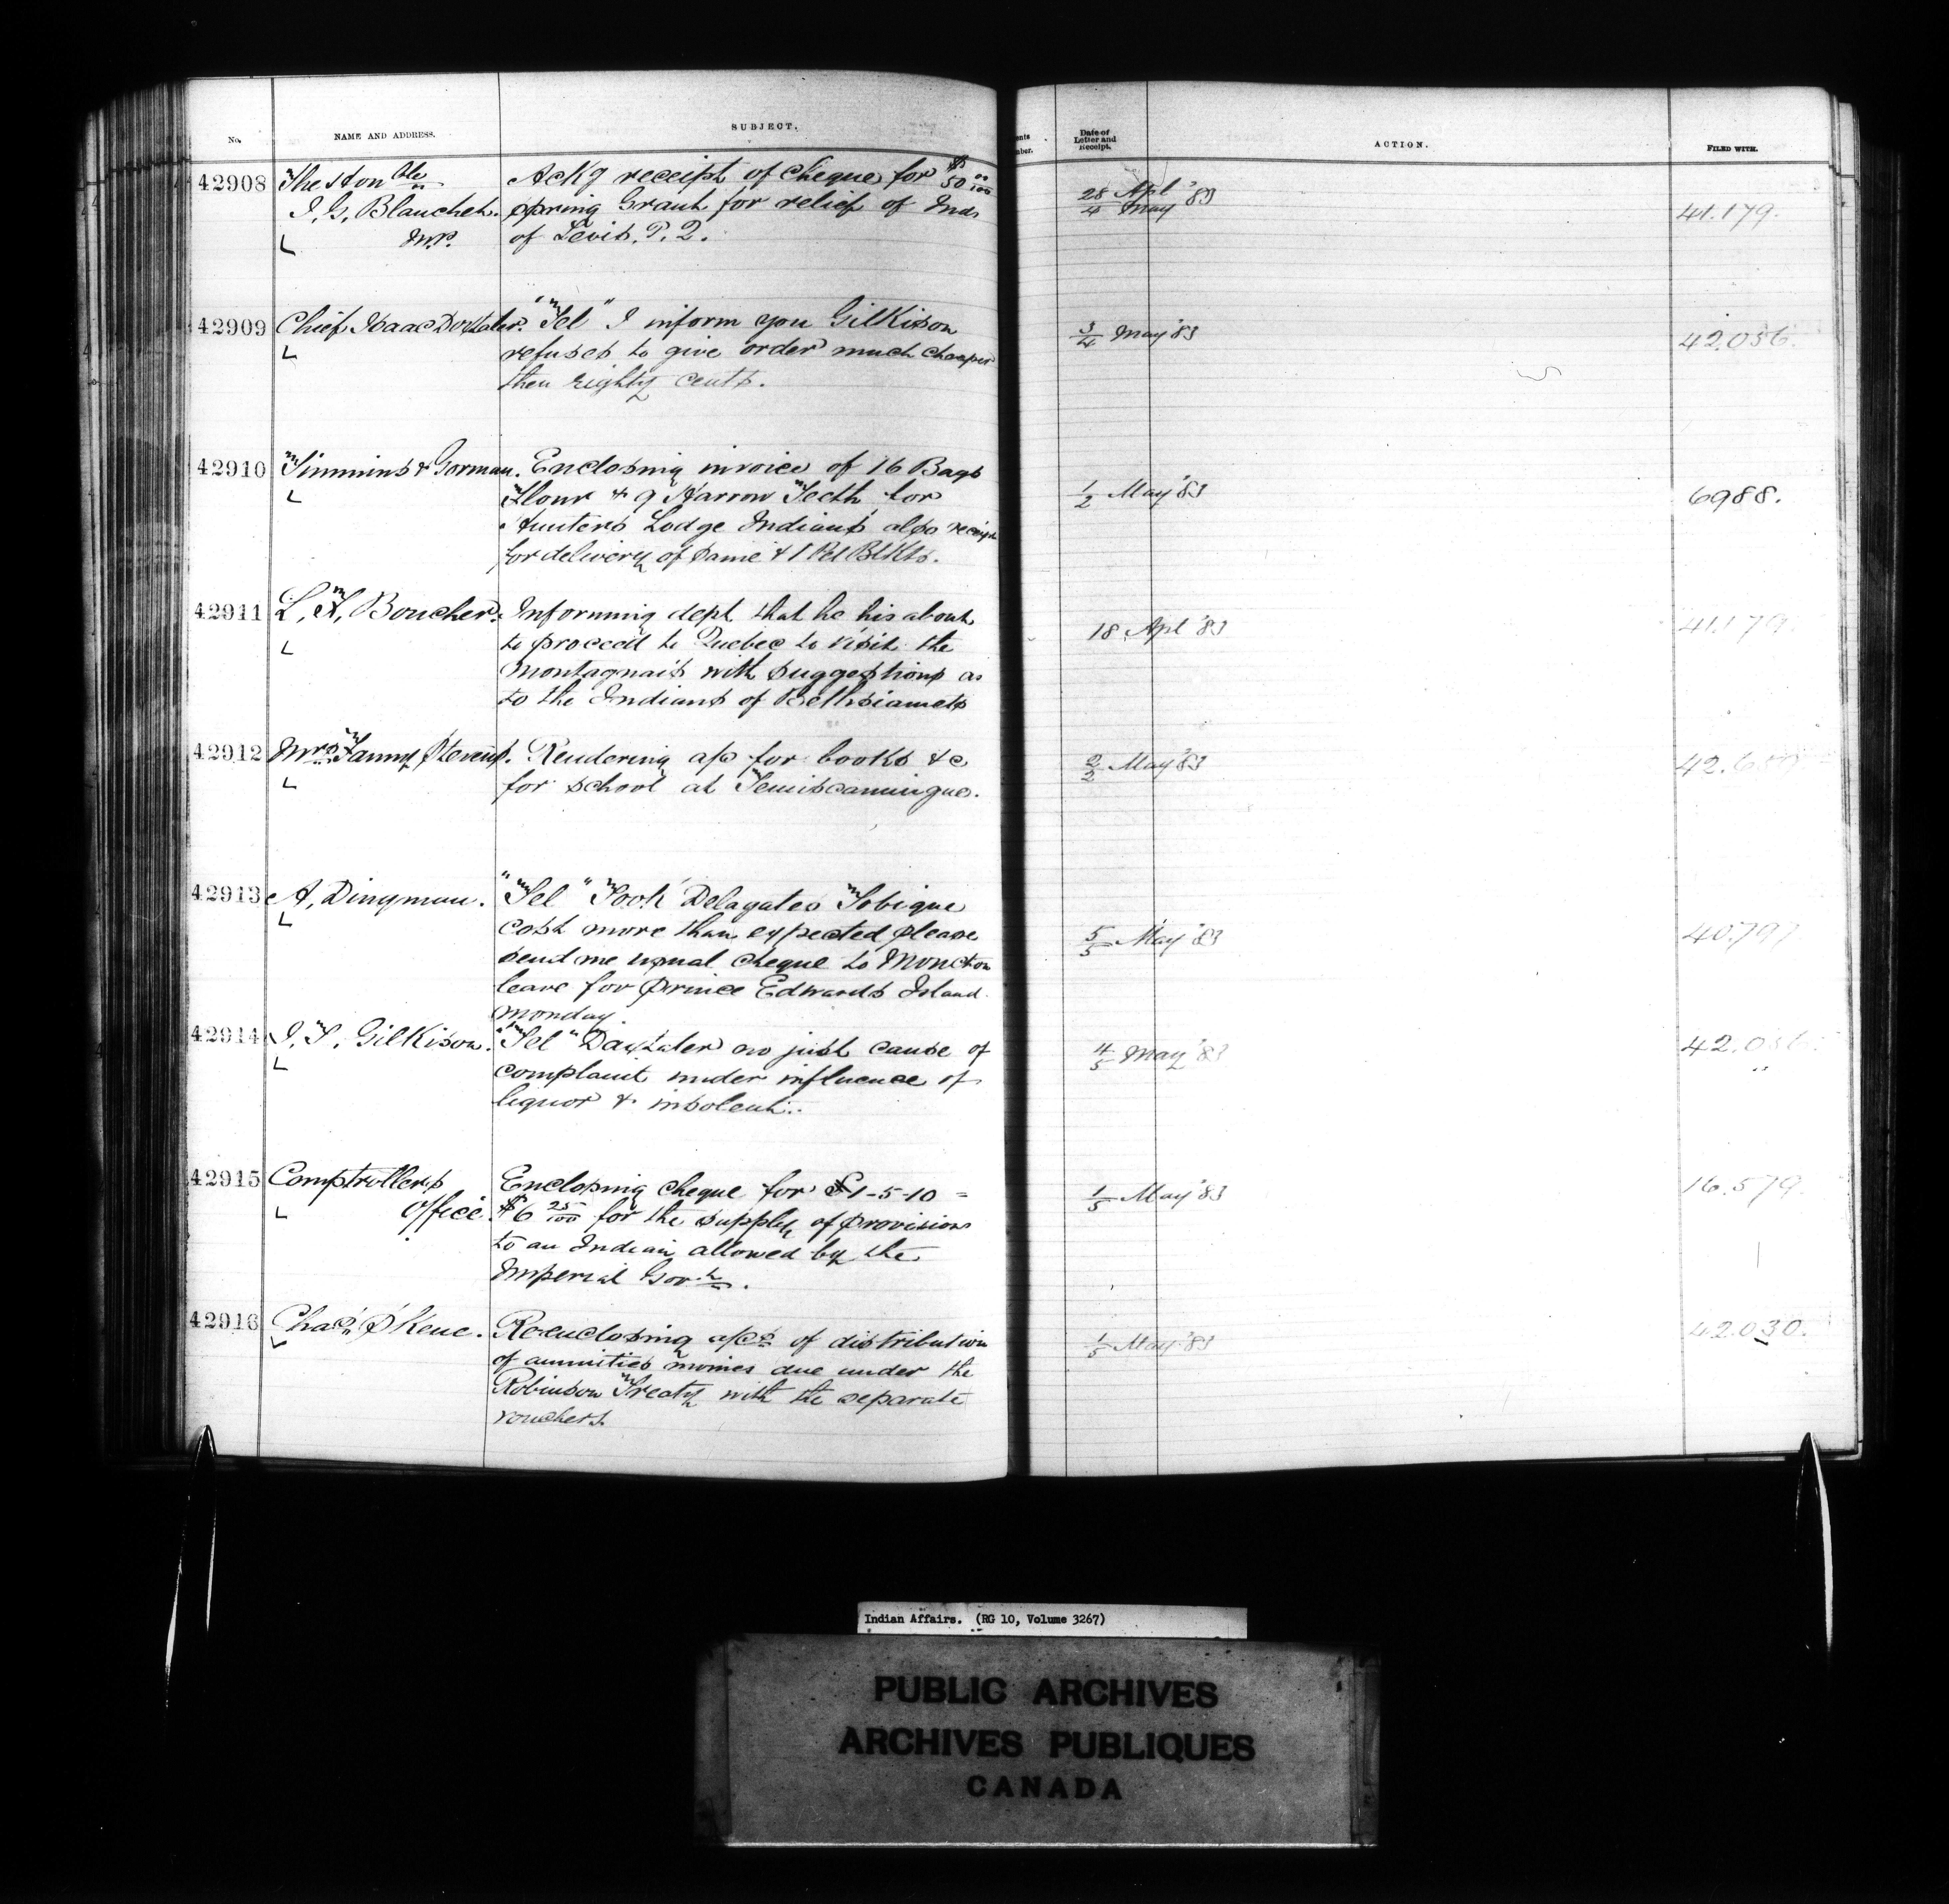 No.
NAME AND ADDRESS.
SUBJECT.
Date of
Letter and
Receipt.
ACTION.
FILED WITH.
42908
The Honble
J. G. Blanchet.
M.P.
Ackg receipt of cheque for $50 00/100
Spring Grant for relief of Inds
of Levis, P.Q.
28 Apl
4 May '83
41.179.
42909
Chief Isaac Doxtater.
"Tel" I inform you Gilkison
refuses to give order much cheaper
then eighty cents.
3/4 May '83
42.036.
42910
Timmins & Gorman.
Enclosing invoice of 16 Bags
Flour & 9 Harrow Teeth for
Hunters Lodge Indians also receipt
for delivery of same & 1 Bel Blkts.
1/2 May '83
6988.
42911
Boucher.
Informing dept that he his about
to proceed to Quebec to visit the
Montagnais with suggestions as
to the Indians of Bethsiamets
18 Apl '83
41179.
42912
Mrs Fanny Stevens.
Rendering a/c for books &c
for school at Temiscamingue.
2/2 May '83
42.
42913
A. Dingman.
"Tel" Took Delagates Tobique
cost more than expected please
send me usual cheque to Moncton
leave for Prince Edwards Island
Monday.
5/5 May '83
40.797
42914
J. T. Gilkison.
"Tel" Daxtater no just cause of
complaint under influence of
liquor & insolent.
4/5 May '83
42.036
42915
Comptrollers
Office.
Enclosing cheque for £1-5-10 =
$6 25/100 for the supply of provisions
to an Indian allowed by the
Imperial Govt.
1/5 May '83
16.579.
42916
Chas Skene.
Re-enclosing a/cs of distribution
of annuities monies due under the
Robinson Treaty with the separate
vouchers.
1/5 May '83
42.030.
Indian Affairs. (RG 10, Volume 3267)
PUBLIC ARCHIVES
ARCHIVES PUBLIQUES
CANADA